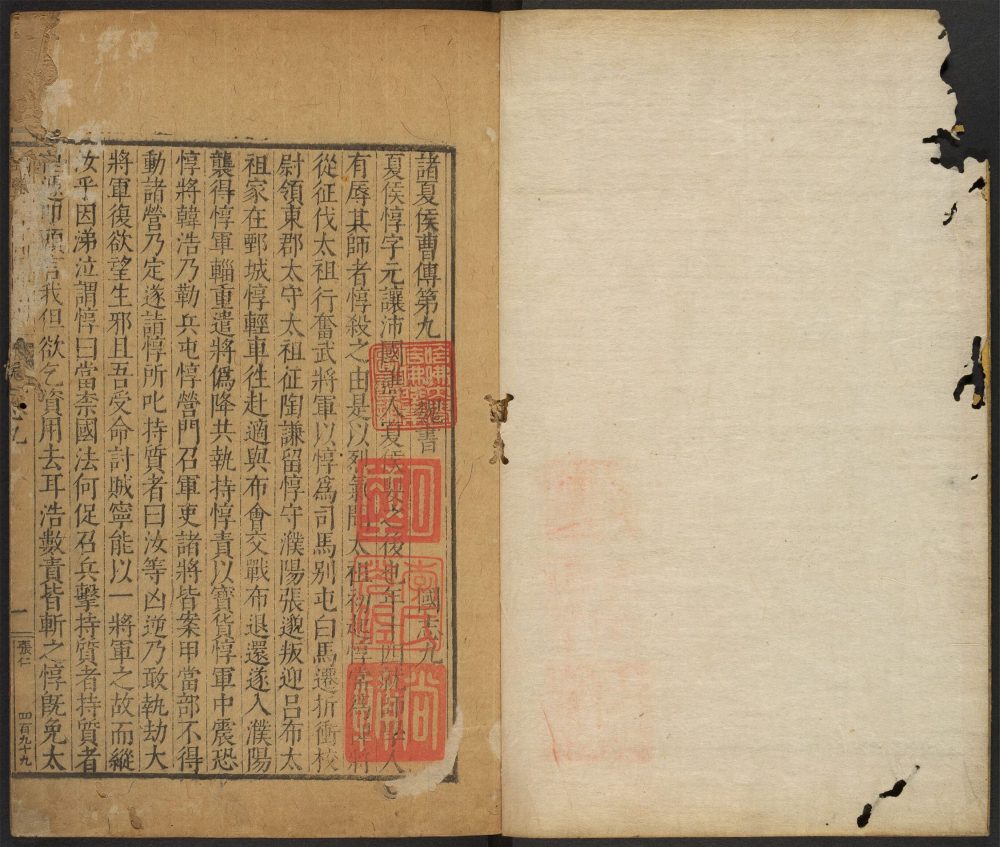 諸夏侯曹傳第九 魏書 國志九
夏侯惇字元讓沛國譙人夏侯嬰之後也年十四就師學人
有辱其師者惇殺之由是以烈氣聞太祖初起惇常為裨將
從征伐太祖行奮武將軍以惇為司馬別屯白馬遷折衝校
尉領東郡太守太祖征陶謙留惇守濮陽張邈叛迎呂布太
祖家在鄄城惇輕車往赴適與布會交戰布退還遂入濮陽
襲得惇軍輜重遣將僞降共執持惇責以寶貨惇軍中震恐
惇將韓浩乃勒兵屯惇營門召軍吏諸將皆案甲當部不得
動諸營乃定遂詣惇所叱持質者曰汝等凶逆乃敢執劫大
將軍復欲望生邪且吾受命討賊寧能以一將軍之故而縱
汝乎因涕泣謂惇曰當柰國法何促召兵擊持質者持質者
遽叩頭言我但欲乞資用去耳浩數責皆斬之惇旣免太
一
張仁
四百九十九